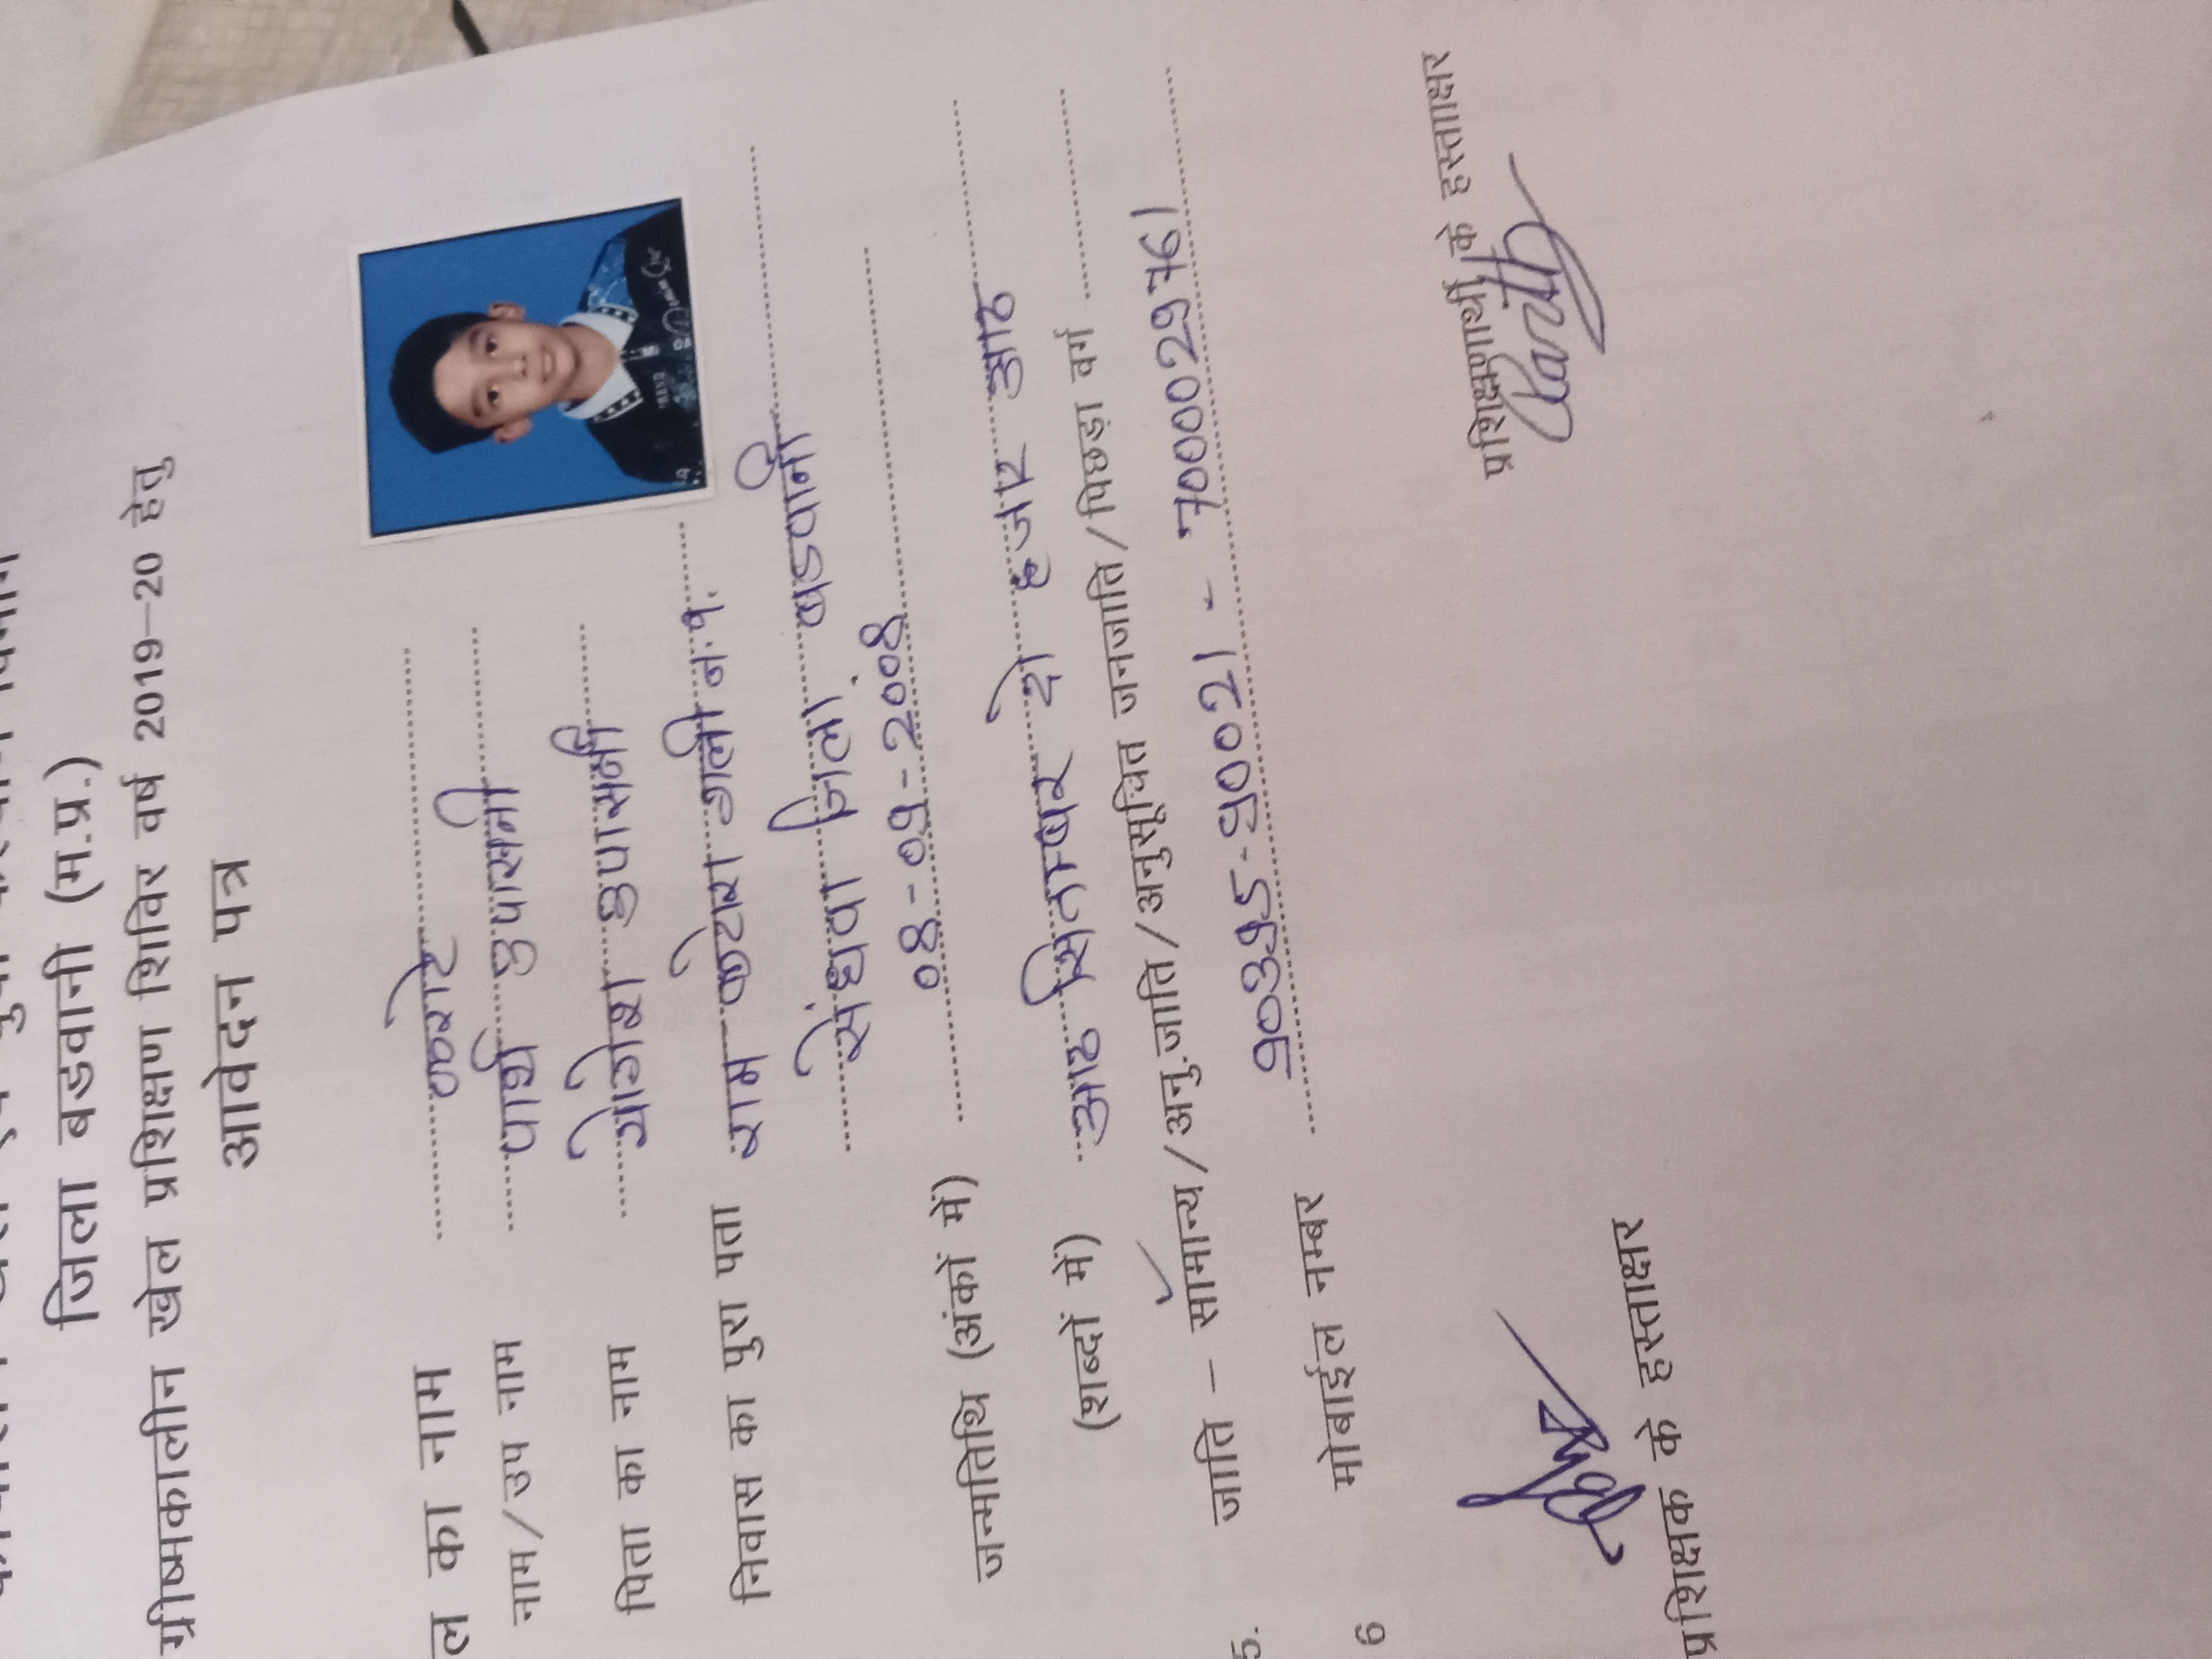 जिला बडवानी (म.प्र.)
ग्रीष्मकालीन खेल प्रशिक्षण शिविर वर्ष 2019–20 हेतु
आवेदन पत्र
ल का नाम कराटे
नाम/उप नाम पार्थ उपासनी
पिता का नाम योगेश उपासनी
निवास का पुरा पता ग्राम गली न. 1.
सेंधवा जिला. बडवानी
जन्मतिथि (अंकों में) ०४-०९-२००८
(शब्दों में) आठ सितम्बर दो हजार आठ
5. जाति – सामान्य/अनु.जाति/अनुसूचित जनजाति/पिछड़ा वर्ग
6 मोबाईल नम्बर - 7000029761
प्रशिक्षणार्थी के हस्ताक्षर
प्रशिक्षक के हस्ताक्षर